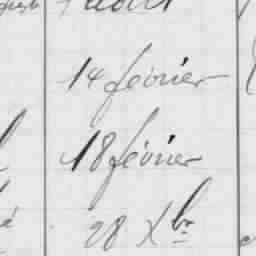 14 février
18 février
28 Xbr